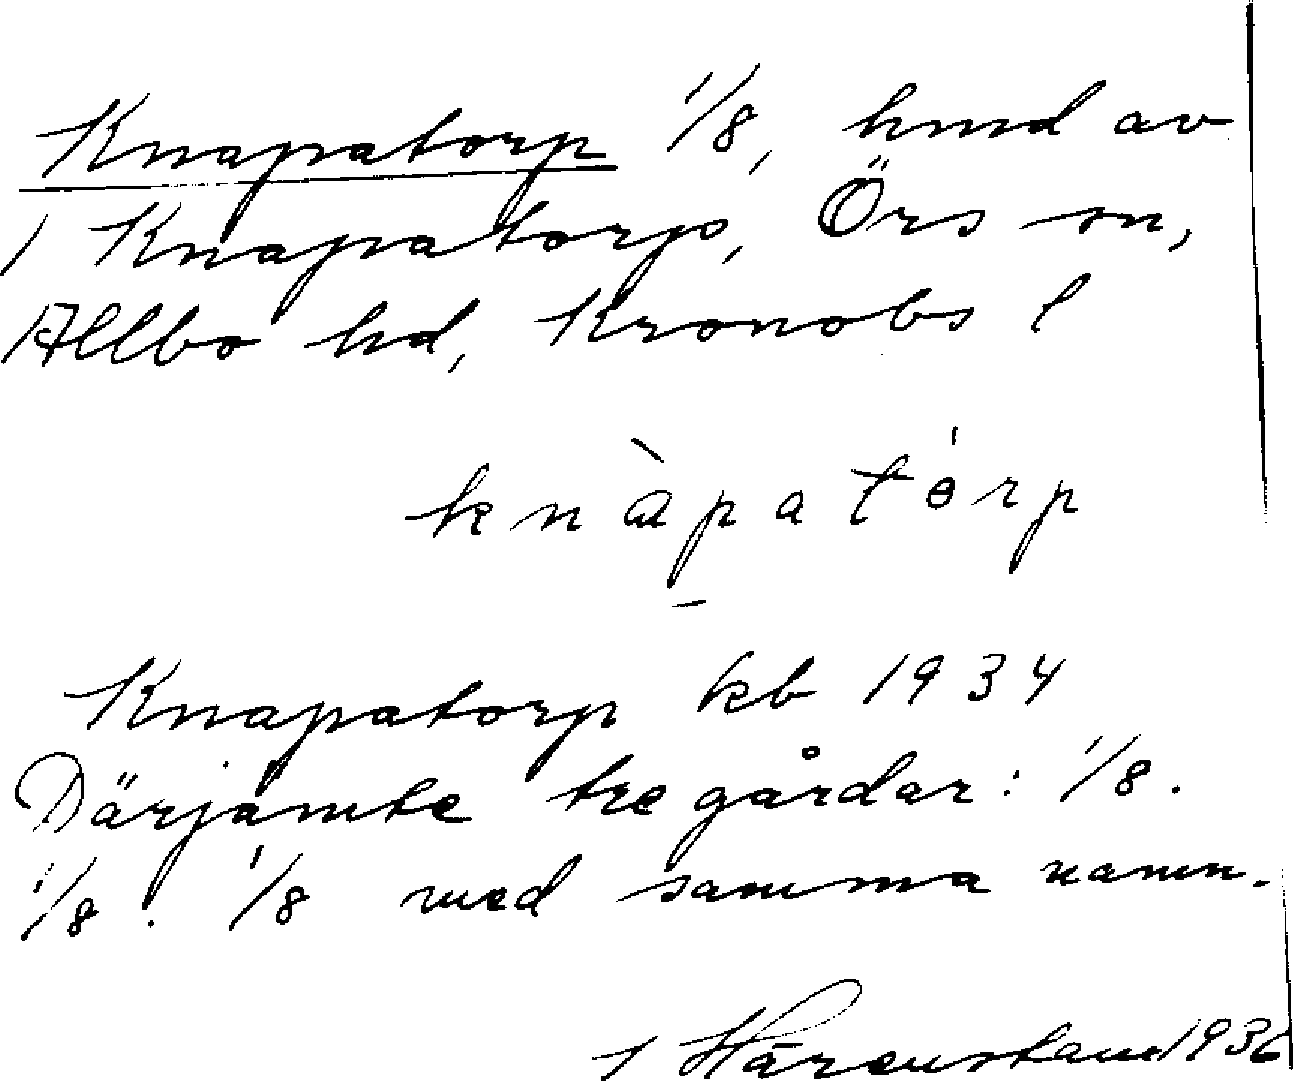 Knapatorp 1/8, hmd av
1 Knapatorp, Örs sn,
Allbo hd, Kronobs l
knàpatórp
Knapatorp kb 1934
Därjämte tre gårdar: 1/8.
1/8. 1/8 med samma namn.
1936